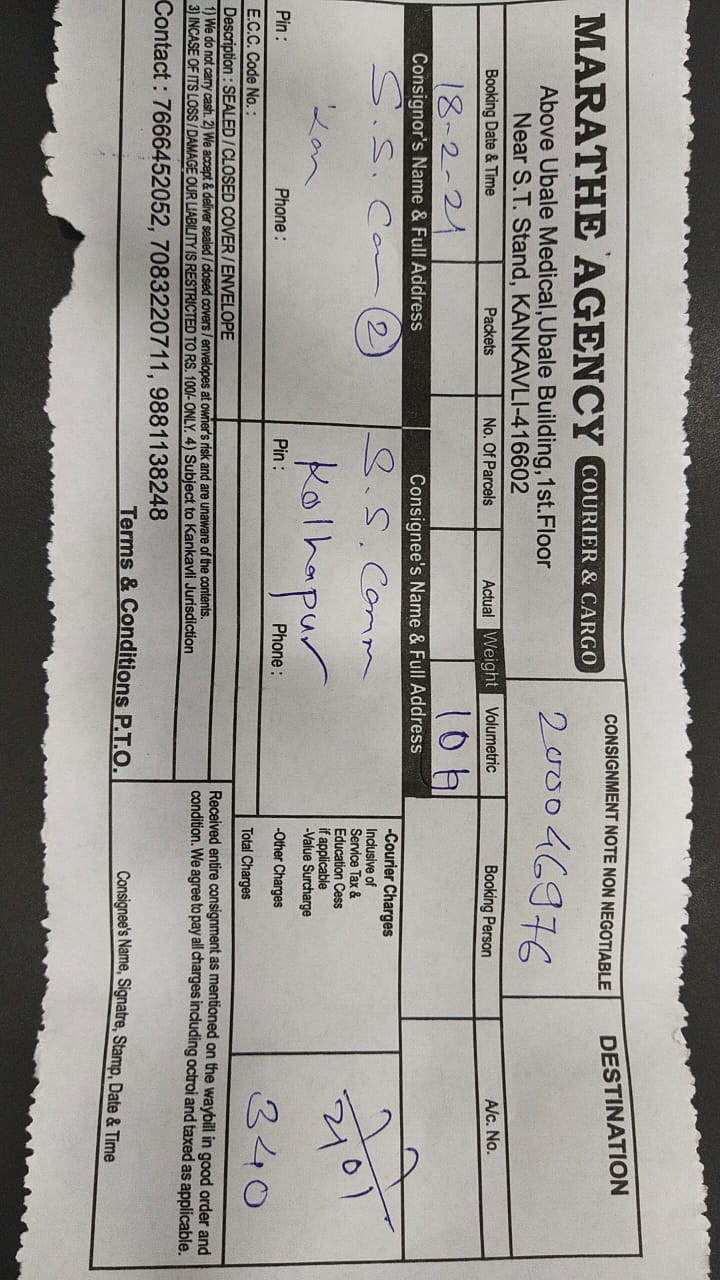 MARATHE AGENCY COURIER & CARGO
Above Ubale Medical, Ubale Building, 1st.Floor
Near S.T. Stand, KANKAVLI-416602
CONSIGNMENT NOTE NON NEGOTIABLE
200046976
DESTINATION
Booking Date & Time
Packets
No. Of Parcels
Actual Weight Volumetric
Booking Person
A/c. No.
18-2-21
Consignor's Name & Full Address
Consignee's Name & Full Address
S.S. 2
S.S. Comm
Kolhapur
Pin : Phone :
Pin : Phone :
-Courier Charges
Inclusive of
Service Tax &
Education Cess
if applicable
-Value Surcharge
-Other Charges
E.C.C. Code No. :
Total Charges
340
Description : SEALED / CLOSED COVER / ENVELOPE
1) We do not carry cash. 2) We accept & deliver sealed / closed covers / envelopes at owner's risk and are unaware of the contents.
3) INCASE OF ITS LOSS / DAMAGE OUR LIABILITY IS RESTRICTED TO RS. 100/- ONLY. 4) Subject to Kankavli Jurisdiction
Received entire consignment as mentioned on the waybill in good order and
condition. We agree to pay all charges including octroi and taxed as applicable.
Contact : 7666452052, 7083220711, 9881138248
Terms & Conditions P.T.O.
Consignee's Name, Signatre, Stamp, Date & Time